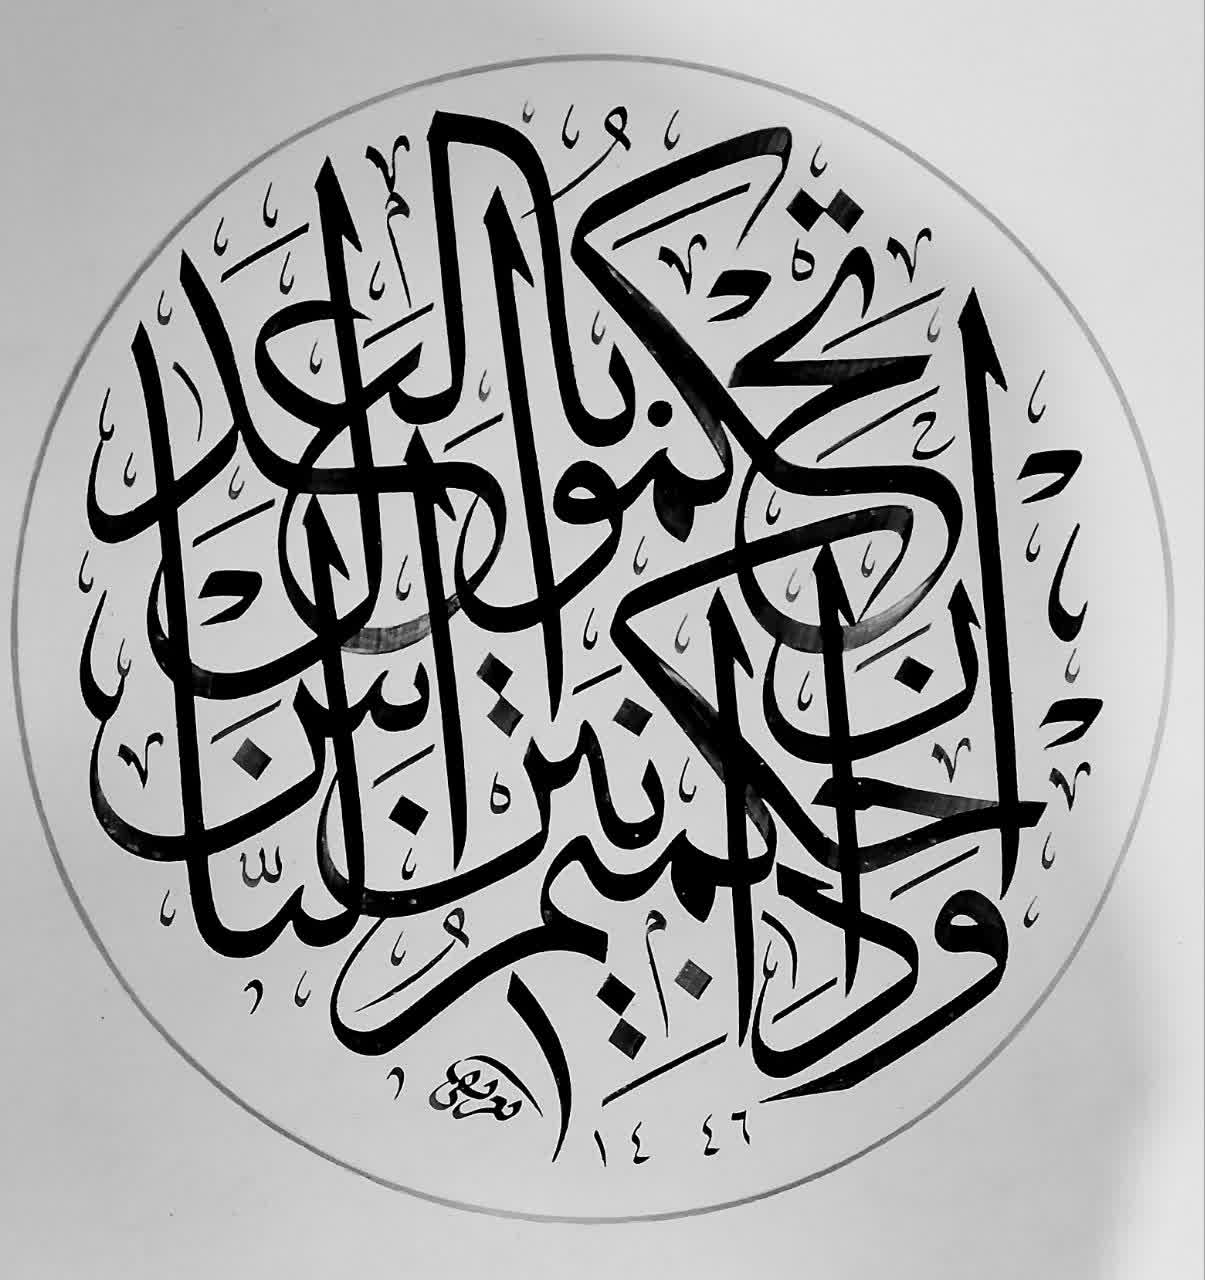 وَإِذَا حَكَمْتُمْ بَيْنَ النَّاسِ أَنْ تَحْكُمُوا بِالْعَدْلِ
١٤٤٦